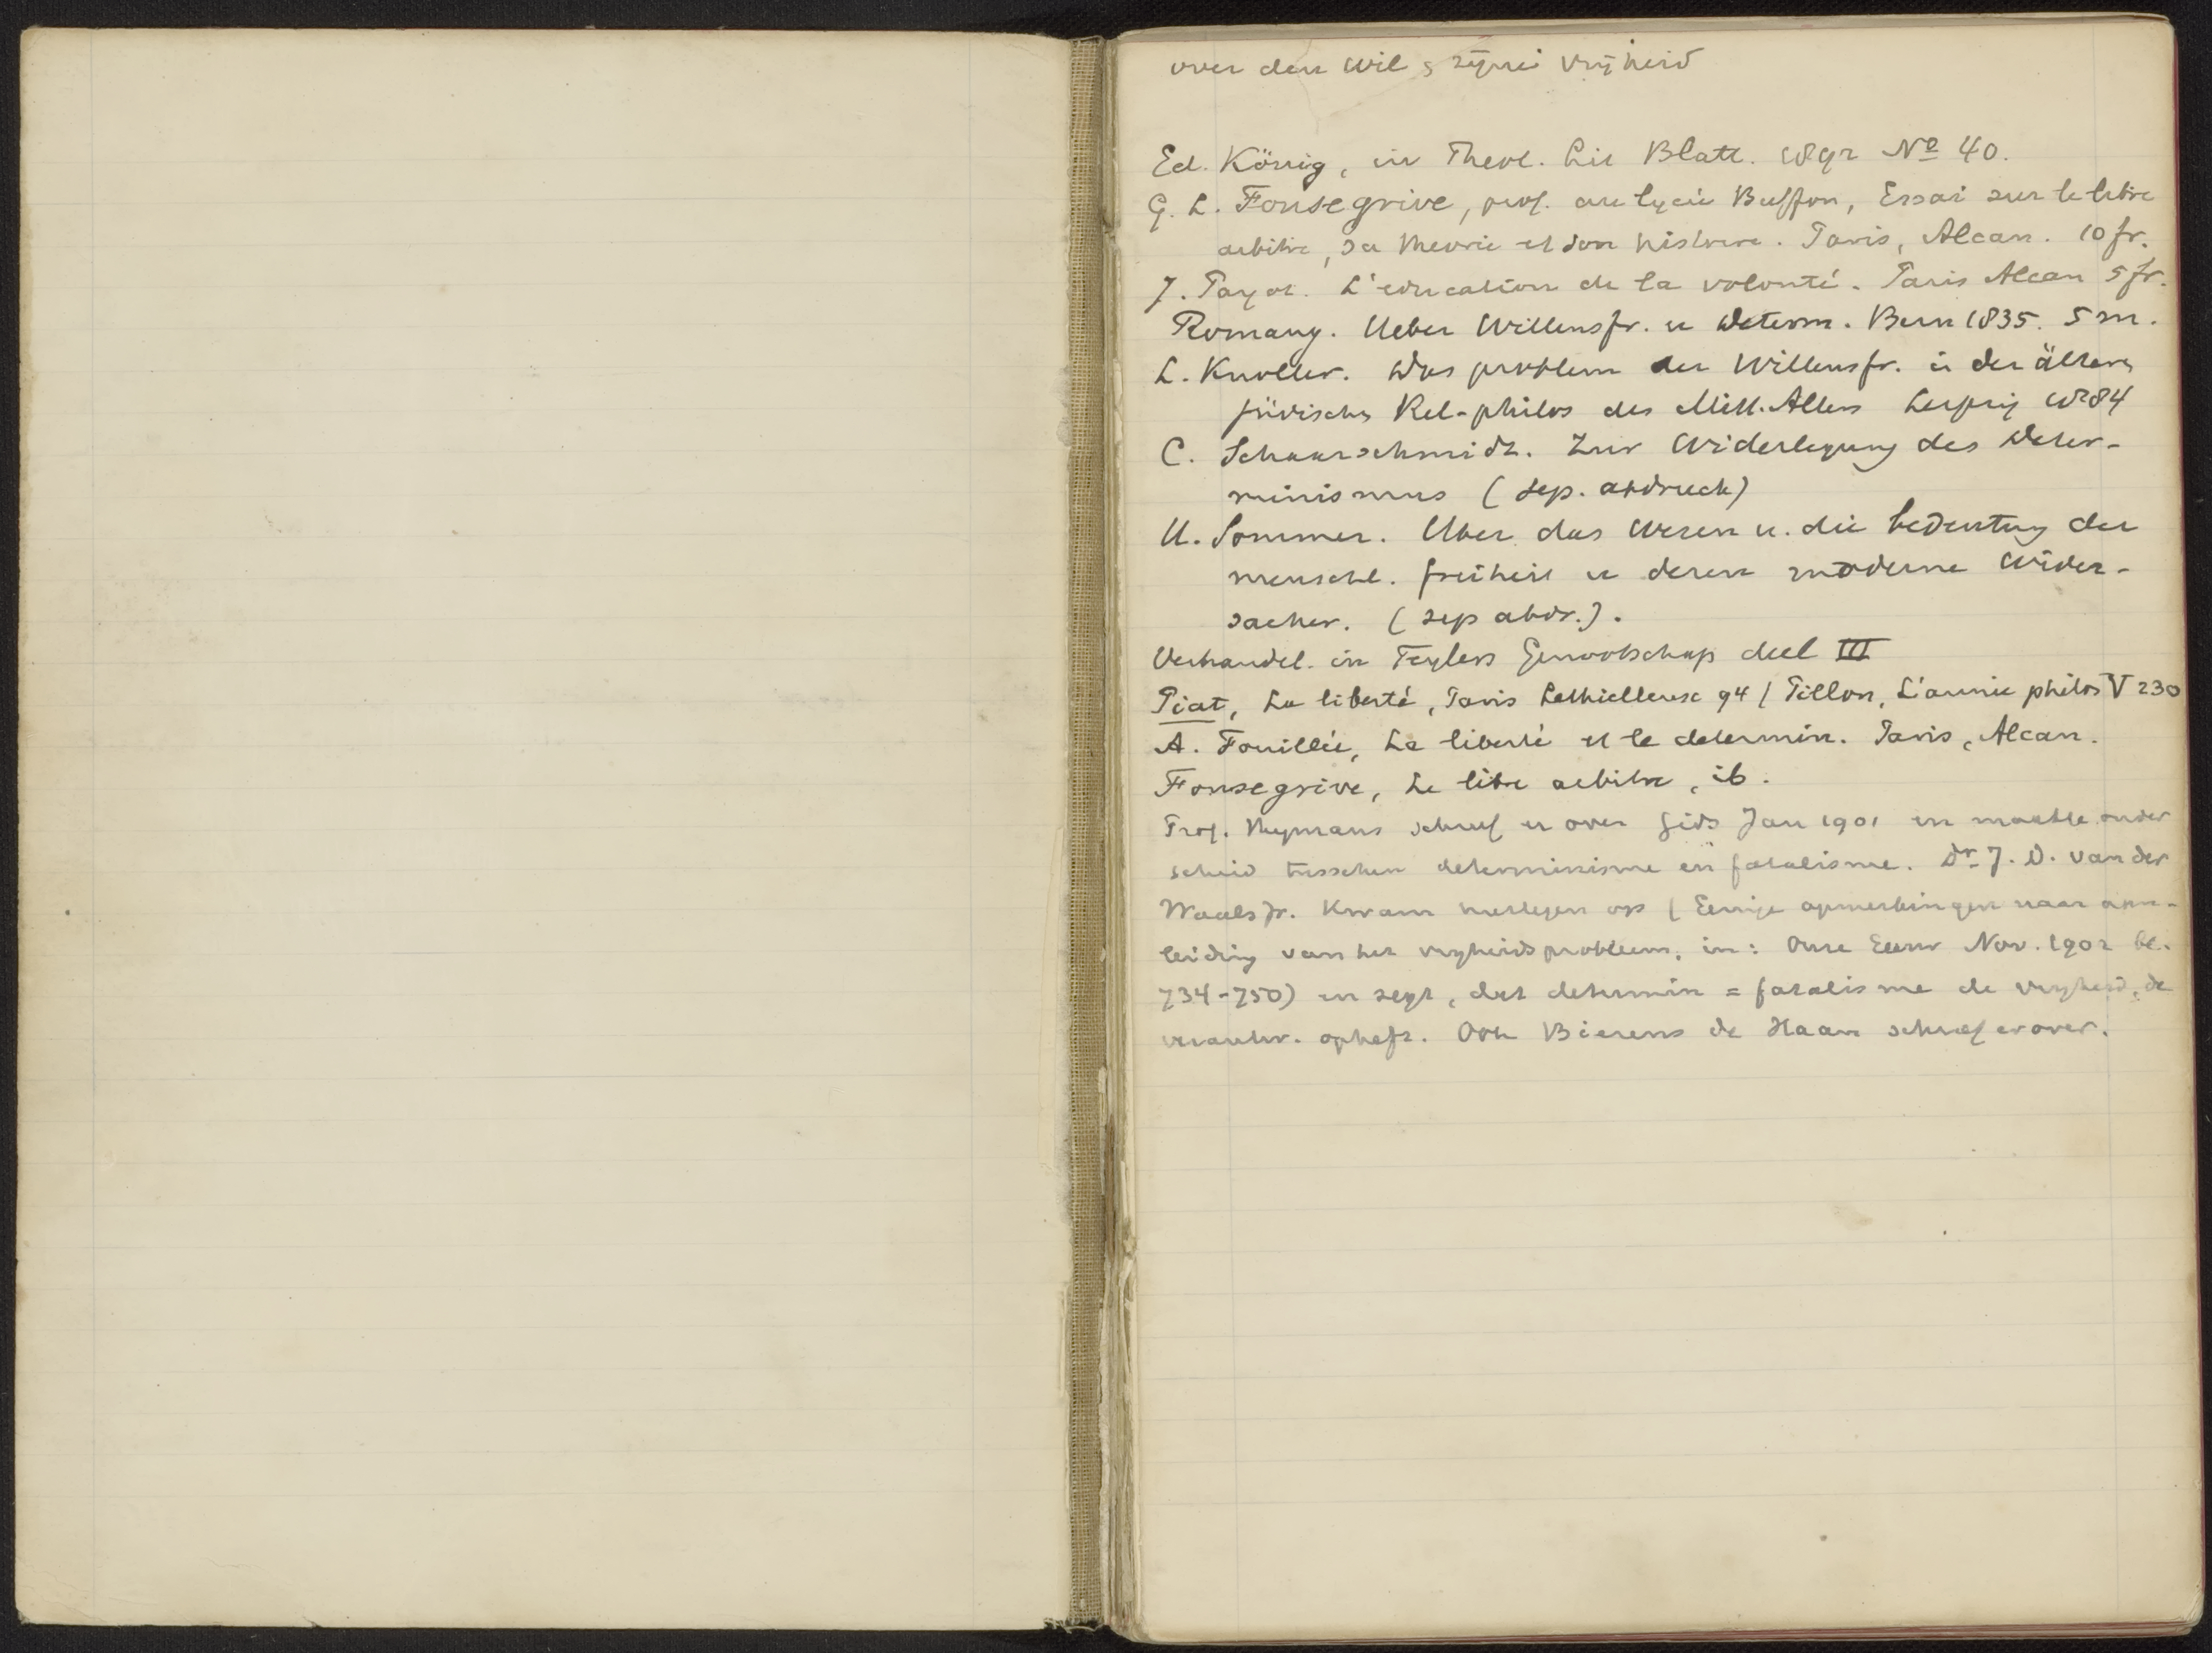 over den wil & zijne vrijheid
Ed. König, in Theol. Lit Blatt. 1892 No 40.
G. L. Fonsegrive, prof. au lycée Buffon, Essai sur le libre
arbitre, sa theorie et son histoire. Paris, Alcan. 10 fr.
J. Payot. L'education de la volonté. Paris Alcan 5 fr.
Romang. Ueber Willensfr. u Determ. Bern 1835. 5 m.
L. Knoller. Das problem der Willensfr. in der älteren
jüdischen Rel-philos des Mitt.Alters Leipzig 1884
C. Schaarschmidt. Zur Widerlegung des Deter-
minismus (sep. abdruck)
U. Sommer. Uber das Wesen u. die bedeutung der
menschl. freiheit u deren moderne Wider-
sacher. (sep abdr.).
Verhandel. in Teylers Genootschap deel III
Piat, La liberté, Paris Lethielleux 94 / Pillon, L'année philos V 230
A. Fouillée, La liberté et le determin. Paris, Alcan.
Fonsegrive, Le libre arbitre, ib.
Prof. Heymans schreef er over Gids Jan 1901 en maakte onder
scheid tusschen determinisme en fatalisme. Dr J. D. van der
Waals Jr. kwam hiertegen op (Eenige opmerkingen naar aan-
leiding van het vrijheidsprobleem, in: Onze Eeuw Nov. 1902 bl.
734-750) en zegt, dat determin = fatalisme de vrijheid, de
verantw. opheft. Ook Bierens de Haan schreef erover.